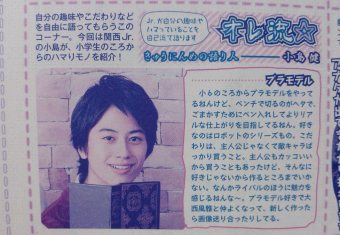 自分の趣味やこだわりなどを自由に語ってもらうこのコーナー。今回は関西Jr.の小島が、小学生のころからハマりモノを紹介！
Jr.が自分の趣味やハマっていることを自己流で語ります
オレ流☆
きゅうにんめの語り人
小島 健
プラモデル
小ものころからプラモデルをやってるねんけど、ペンチで切るのがヘタで、ごまかすためにペン入れしてよりリアルな仕上がりを目指してるねん。好きなのはロボットのシリーズもの。こだわりは、主人公じゃなくて敵キャラばっかり買うこと。主人公もカッコいいから買うこともあったけど、そんなに好きじゃないから作るところまでいかない。なんかライバルのほうに魅力を感じるねんな〜。プラモデル好きで大西風雅と仲よくなって、新しく作ったら画像送り合ったりしてる。